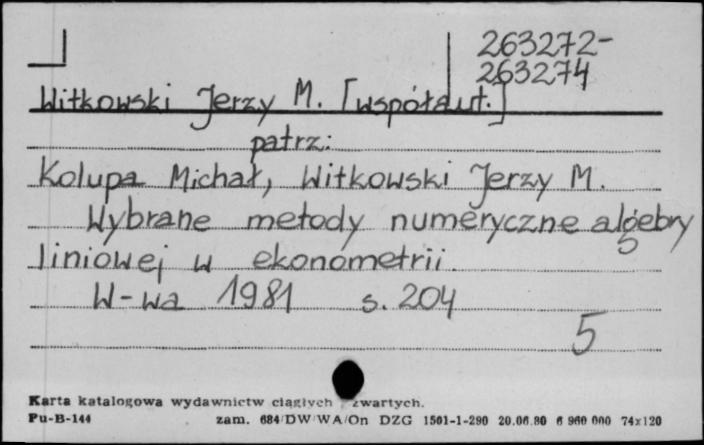 263272-
263274
Witkowski Jerzy M. [współaut.]
patrz:
Kolupa Michał, Witkowski Jerzy M.
Wybrane metody numeryczne algebry
liniowej w ekonometrii.
W-wa 1981 s. 204
5
Karta katalogowa wydawnictw ciągłych i zwartych.
Pu-B-144 zam. 684/DW/WA/On DZG 1501-1-290 20.06.80 6 960 000 74x120